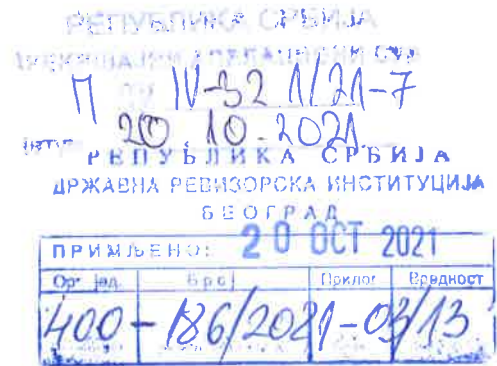 РЕПУБЛИКА СРБИЈА
ПРЕКРШАЈНИ АПЕЛАЦИОНИ СУД
IV-32 1/21-7
20.10.2021
РЕПУБЛИКА СРБИЈА
ДРЖАВНА РЕВИЗОРСКА ИНСТИТУЦИЈА
БЕОГРАД
ПРИМЉЕНО: 20 OCT 2021
Орг. јед. Број Прилог Вредност
400-186/2021-03/13